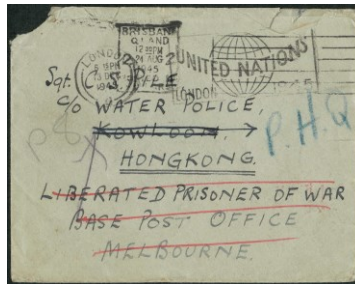 BRISBANE
Q'LAND
12 30PM
24 AUG
1945
LONDON
6 15PM
1945
UNITED NATIONS
LONDON 1945
Sgt.
C/o WATER POLICE,
KOWLOON.
HONGKONG.
P.H.Q
LIBERATED PRISONER OF WAR
BASE POST OFFICE
MELBOURNE.